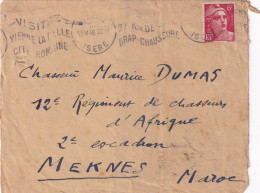 VISITEZ
VIENNE LA BELLE
CITE ROMAINE
ISERE
DRAP-CHAUSSURE
Chasseur Maurice DUMAS
12e Régiment de chasseurs
d'Afrique
2e escadron
MEKNES
Maroc